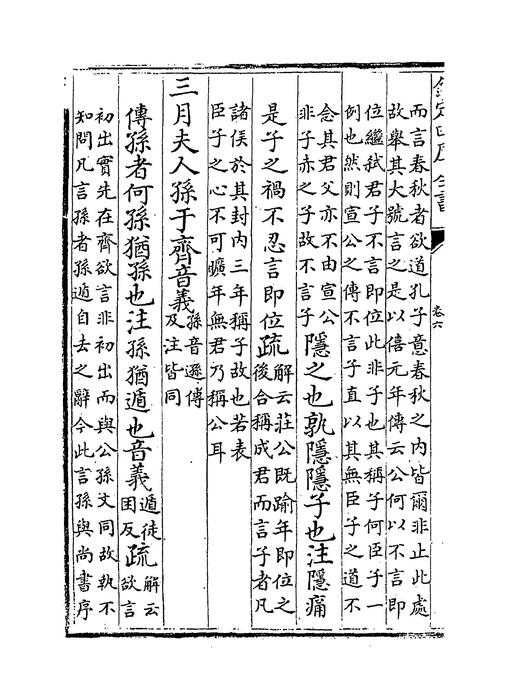 欽定四庫全書
卷六
而言春秋者欲道孔子意春秋之内皆爾非止此處
故舉其大號言之是以僖元年傳云公何以不言即
位繼弑君子不言即位此非子也其稱子何臣子一
例也然則宣公之傳不言子直以其無臣子之道不
念其君父亦不由宣公
非子赤之子故不言子
隱之也孰隱隱子也注隱痛
是子之禍不忍言即位疏
解云莊公既踰年即位之
後合稱成君而言子者凡
諸侯於其封内三年稱子故也若表
臣子之心不可曠年無君乃稱公耳
三月夫人孫于齊音義
孫音遜傳
及注皆同
傳孫者何孫猶孫也注孫猶遁也音義
遁徒
困反
疏
解云
欲言
初出實先在齊欲言非初出而與公孫文同故執不
知問凡言孫者孫遁自去之辭今此言孫與尚書序